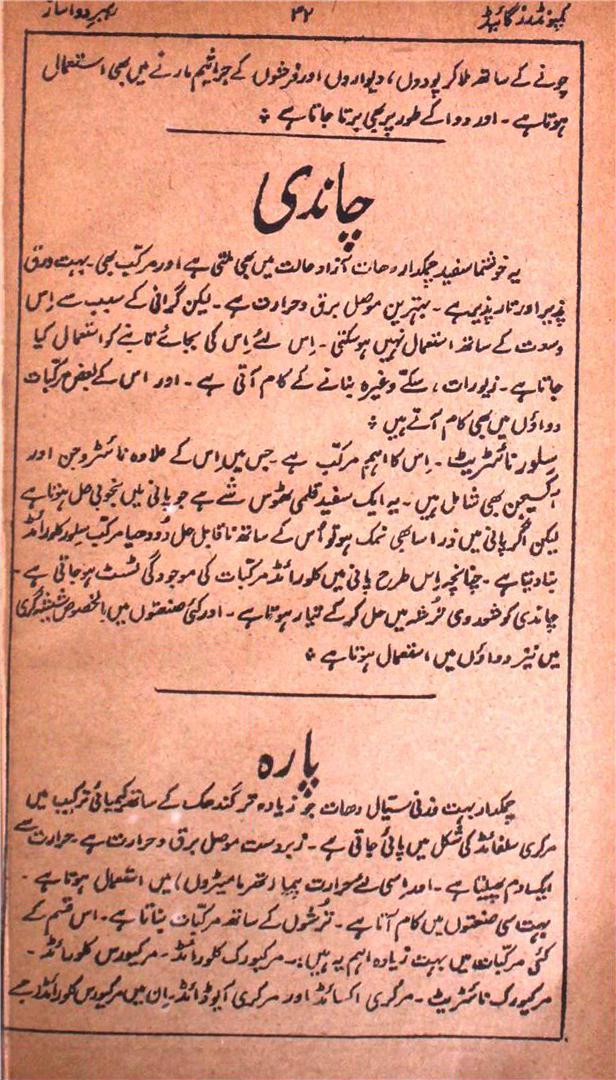 کمپونڈرز گائیڈ ۳۲ رہبر دواساز
چونے کے ساتھ ملا کر پودوں، دیواروں اور فرشوں کے جراثیم مارنے میں بھی استعمال
ہوتا ہے۔ اور دوا کے طور پر بھی برتا جاتا ہے ٭
چاندی
یہ خوشنما سفید چمکدار دھات آزاد حالت میں بھی ملتی ہے اور مرکب بھی۔ بہت ورق
پذیر اور تار پذیر ہے۔ بہترین موصل برق و حرارت ہے۔ لیکن گرانی کے سبب سے اِس
وسعت کے ساتھ استعمال نہیں ہو سکتی۔ اِس لئے اِس کی بجائے تانبے کو استعمال کیا
جاتا ہے۔ زیورات، سکّے وغیرہ بنانے کے کام آتی ہے۔ اور اس کے بعض مرکبات
دواؤں میں بھی کام آتے ہیں ٭
سِلور نائٹریٹ۔ اِس کا اہم مرکب ہے جس میں اِس کے علاوہ نائٹروجن اور
آکسیجن بھی شامل ہیں۔ یہ ایک سفید قلمی ٹھوس شے ہے جو پانی میں بخوبی حل ہوتا ہے
لیکن اگر پانی میں ذرا سا بھی نمک ہو تو اُس کے ساتھ ناقابل حل دُودھیا مرکب سِلور کلورائڈ
بنا دیتا ہے۔ چنانچہ اِس طرح پانی میں کلورائڈ مرکبات کی موجودگی ٹسٹ ہو جاتی ہے۔
چاندی کو شوروی تُرشہ میں حل کر کے تیار ہوتا ہے۔ اور کئی صنعتوں میں بالخصوص شیشہ گری
میں نیز دواؤں میں استعمال ہوتا ہے ٭
پارہ
چمکدار بہت وزنی سیّال دھات جو زیادہ تر گندھک کے ساتھ کیمیائی ترکیب میں
مرکری سلفائڈ کی شکل میں پائی جاتی ہے۔ زبردست موصل برق و حرارت ہے۔ حرارت سے
ایک دم پھیلتا ہے۔ اور اسی لئے حرارت پیما (تھرمامیٹروں) میں استعمال ہوتا ہے۔
بہت سی صنعتوں میں کام آتا ہے۔ تُرشوں کے ساتھ مرکبات بناتا ہے۔ اس قسم کے
کئی مرکبات میں بہت زیادہ اہم یہ ہیں:۔ مرکیورک کلورائڈ۔ مرکیورس کلورائڈ۔
مرکیورک نائٹریٹ۔ مرکری اکسائڈ اور مرکری آیوڈائڈ۔ اِن میں مرکیورس کلورائڈ جسے